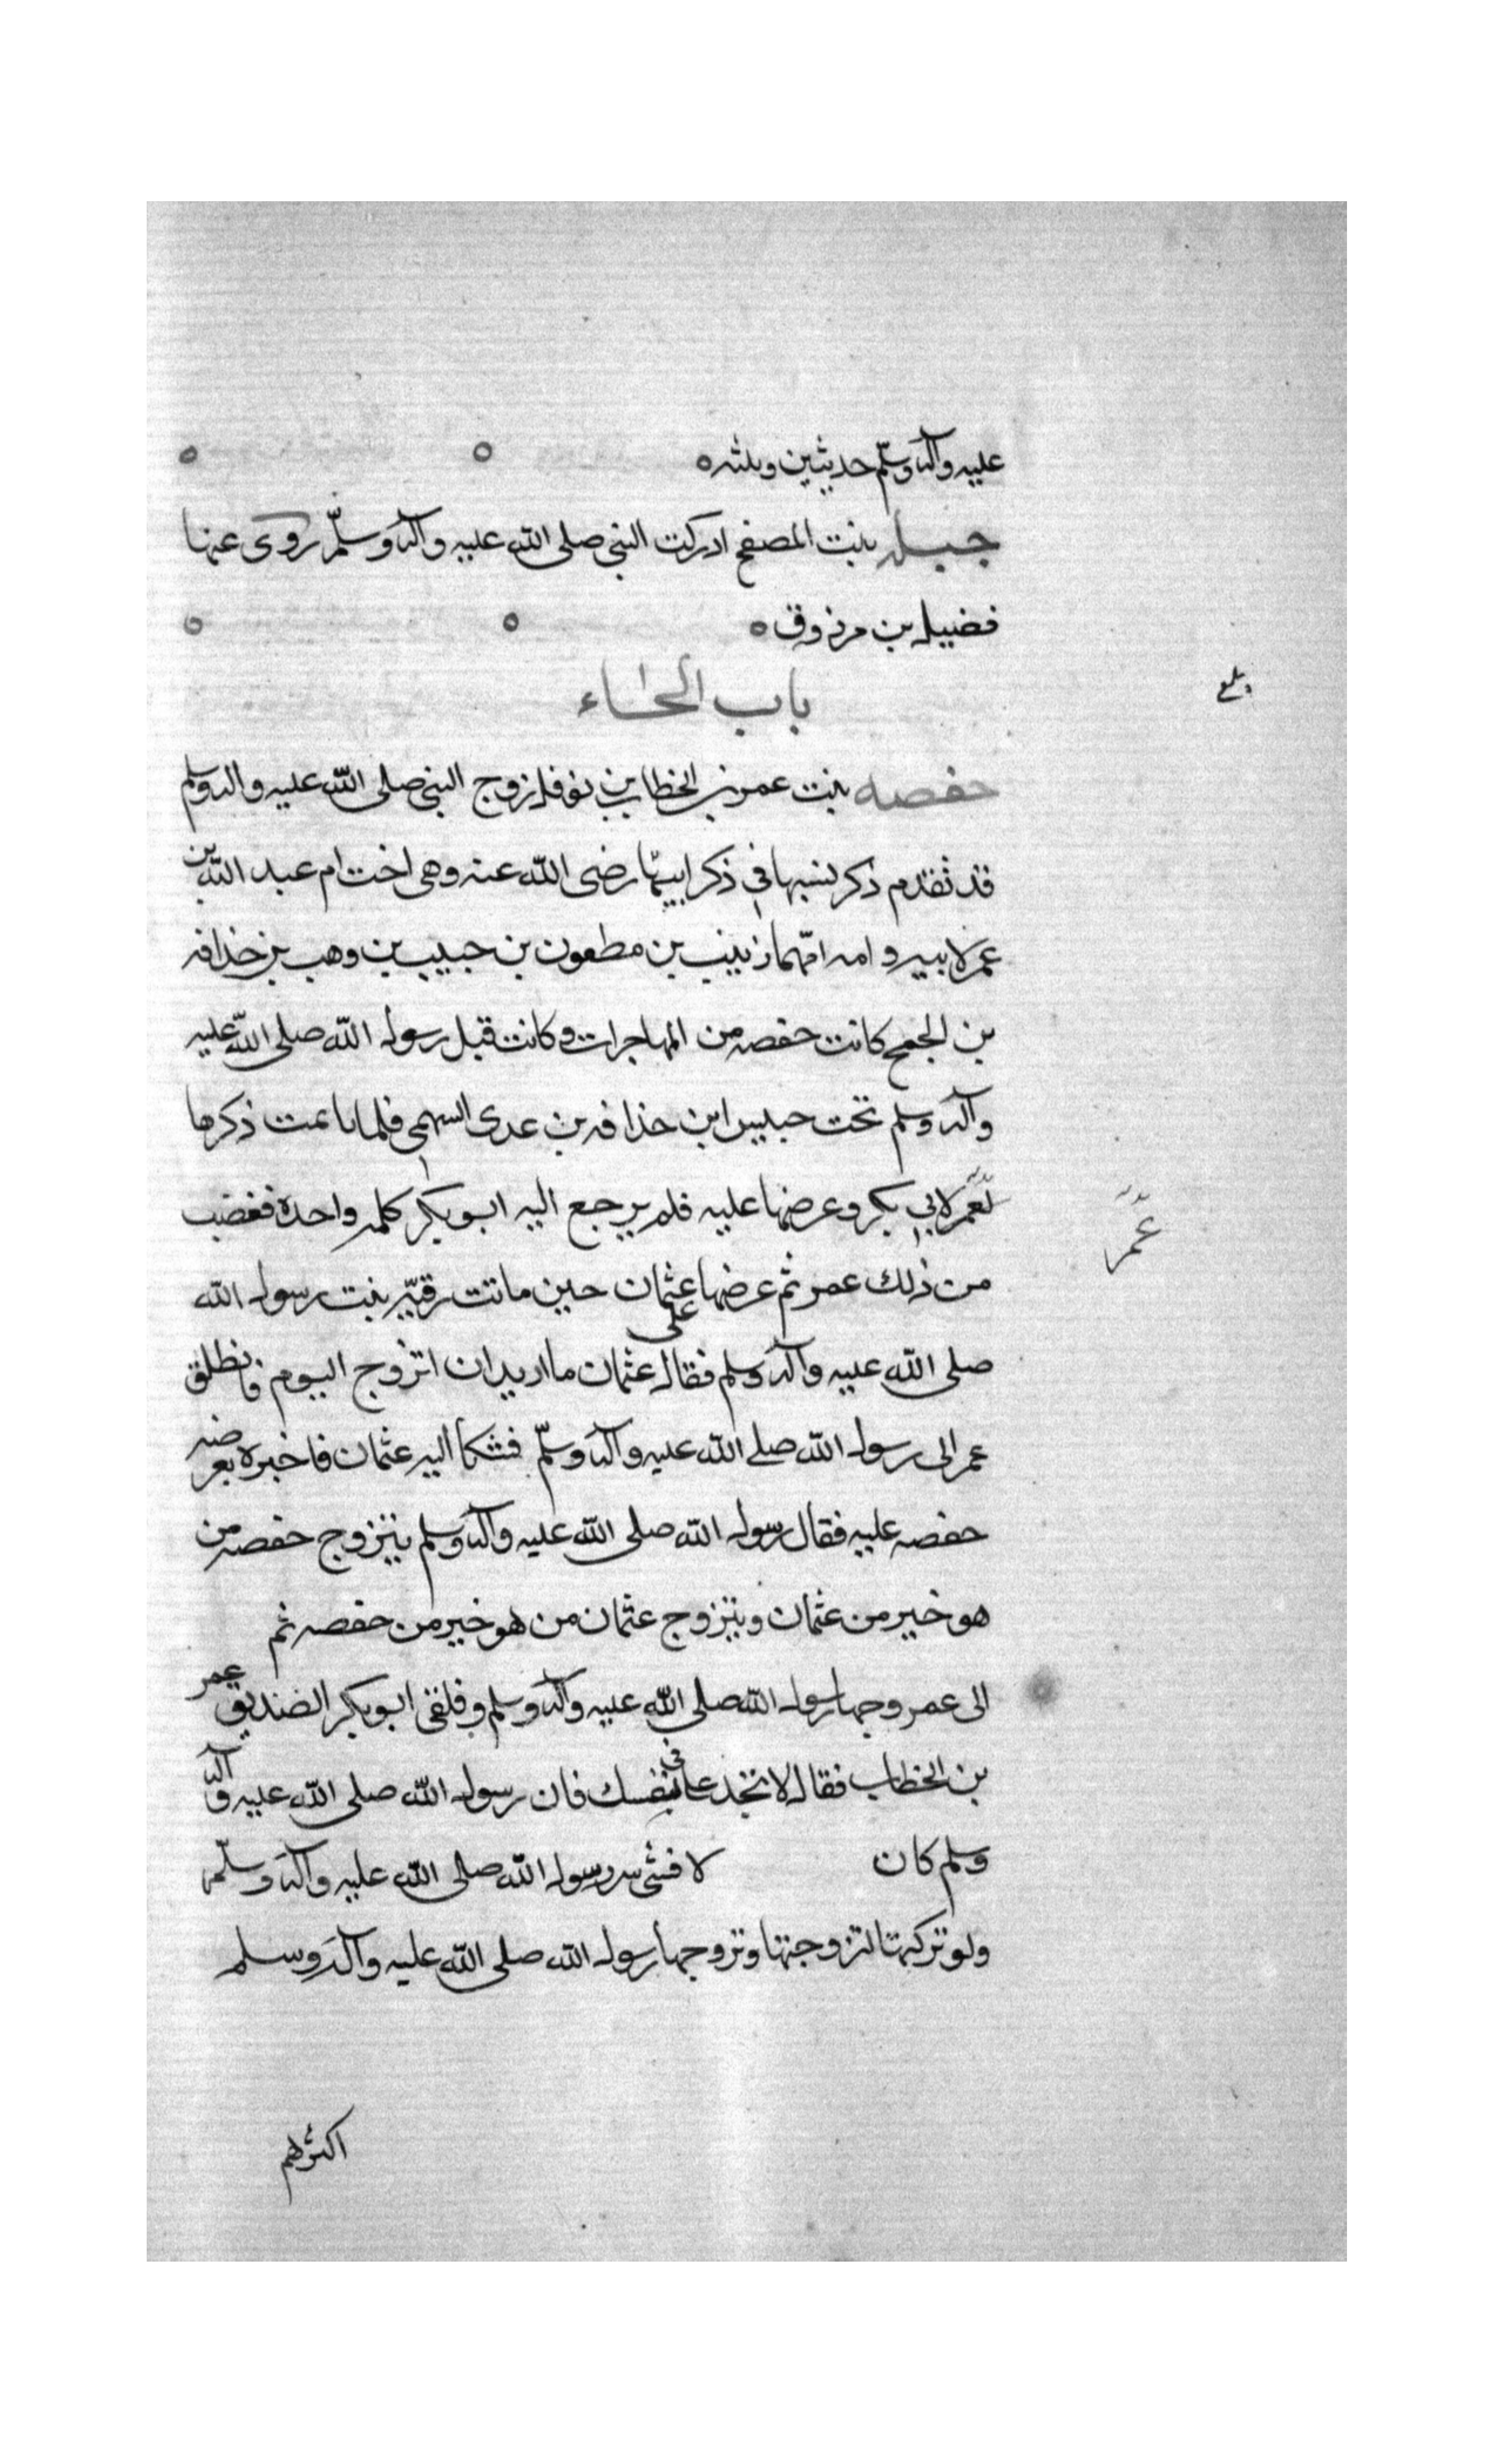 عليه وآله وسلم حديثين وثلثه
جبله بنت المصفح ادركت النبي صلى الله عليه وآله وسلم روى عنها
فضيل بن مرزوق
باب الحاء
حفصه بنت عمر بن الخطاب بن نوفل زوج النبي صلى الله عليه وآله وسلم
قد تقدم ذكر نسبها في ذكر ابيها رضى الله عنه وهى اخت ام عبد الله بن
عمر لابيه وامه امهما زينب بن مطعون بن حبيب بن وهب بن خذافه
بن الجمح كانت حفصه من المهاجرات وكانت قبل رسول الله صلى الله عليه
وآله وسلم تحت حبيس ابن خذافه بن عدى السهمى فلما تايمت ذكرها
لعمر لابي بكر وعرضها عليه فلم يرجع اليه ابو بكر كلمه واحدة فغضب
عمر
من ذلك عمر ثم عرضها على عثمان حين ماتت رقيه بنت رسول الله
صلى الله عليه وآله وسلم فقال عثمان ما اريد ان اتزوج اليوم فانطلق
عمر الى رسول الله صلى الله عليه وآله وسلم فشكا اليه عثمان فاخبره بعرضه
حفصه عليه فقال رسول الله صلى الله عليه وآله وسلم يتزوج حفصه من
هو خير من عثمان ويتزوج عثمان من هو خير من حفصه ثم
الى عمر وجها رسول الله صلى الله عليه وآله وسلم وفلقى ابو بكر الصديق عمر
بن الخطاب فقال لا تجد على في نفسك فان رسول الله صلى الله عليه وآله
وسلم كان لا فشى سر رسول الله صلى الله عليه وآله وسلم
ولو تركها لتزوجتها وتزوجها رسول الله صلى الله عليه وآله وسلم
اكثرهم